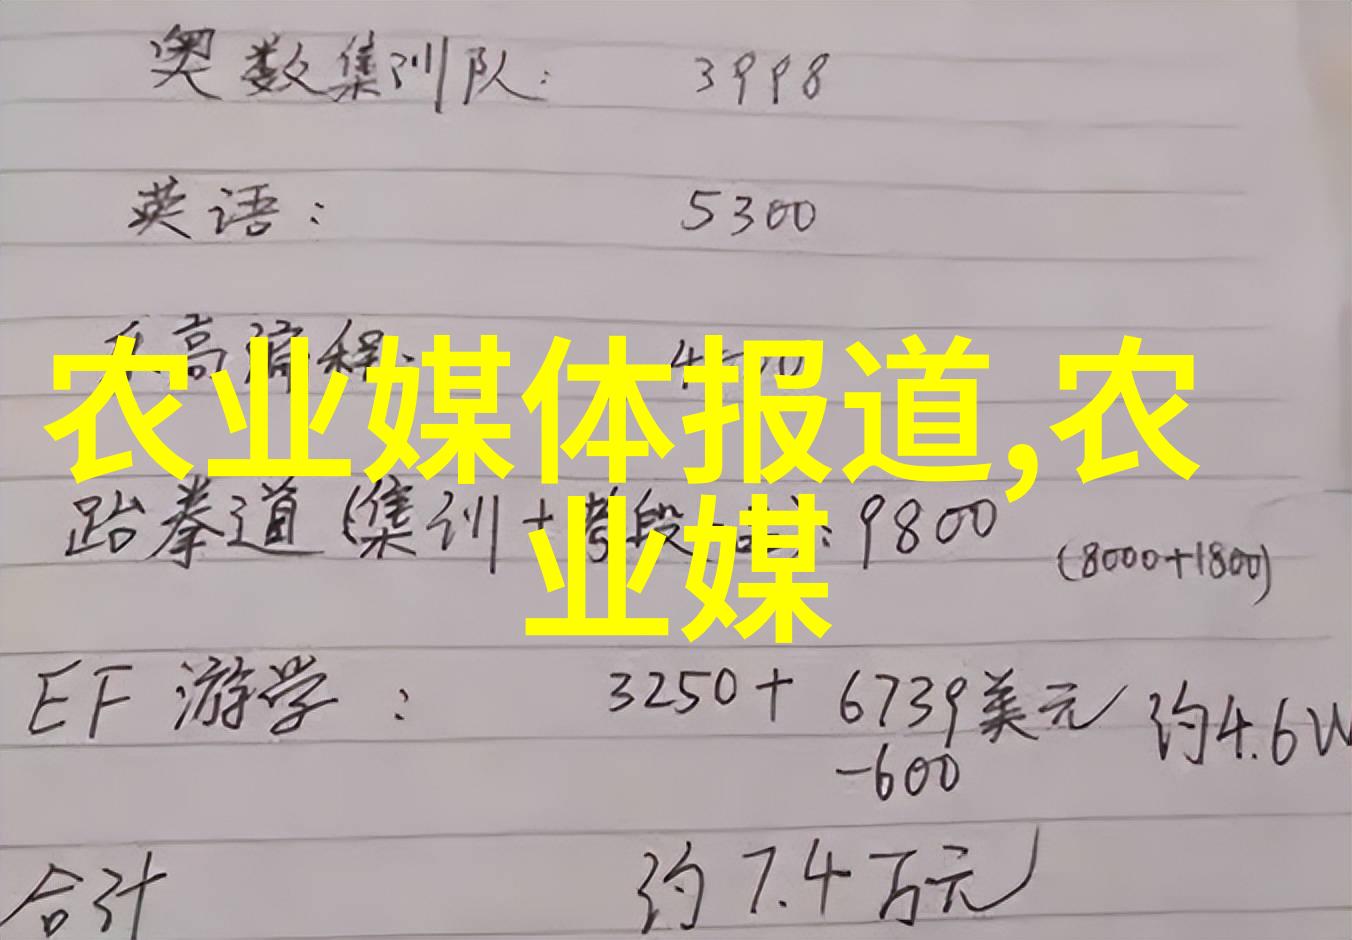 奥数集训队: 3998
英语: 5300
高编程:
农业媒体报道,农
业媒
跆拳道(集训+考段 : 9800 (8000+1800)
EF 游学: 3250+ 6739美元 约4.6W
-600
合计 约7.4万元